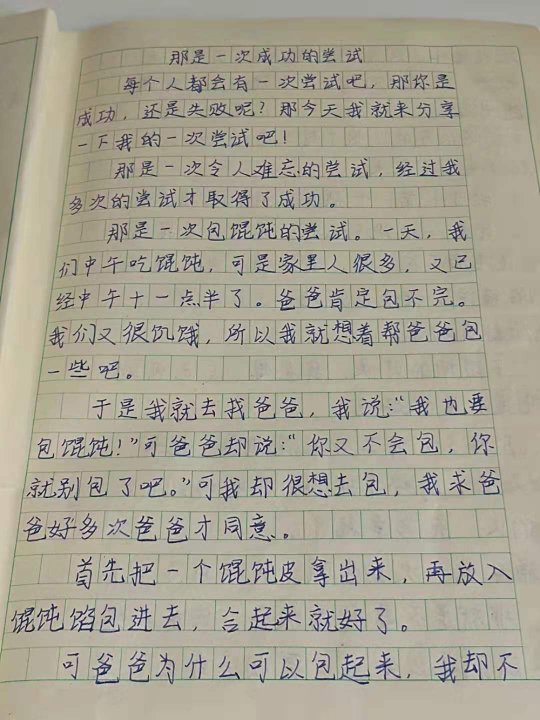 那是一次成功的尝试
每个人都会有一次尝试吧，那你是
成功，还是失败呢？那今天我就来分享
一下我的一次尝试吧！
那是一次令人难忘的尝试，经过我
多次的尝试才取得了成功。
那是一次包馄饨的尝试。一天，我
们中午吃馄饨，可是家里人很多，又已
经中午十一点半了。爸爸肯定包不完。
我们又很饥饿，所以我就想着帮爸爸包
一些吧。
于是我就去找爸爸，我说：“我也要
包馄饨！”可爸爸却说：“你又不会包，你
就别包了吧。”可我却很想去包，我求爸
爸好多次爸爸才同意。
首先把一个馄饨皮拿出来，再放入
馄饨馅包进去，合起来就好了。
可爸爸为什么可以包起来，我却不